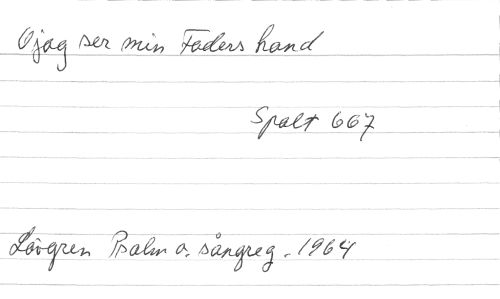 O jag ser min Faders hand
Spalt 667
Lövgren Psalm o. sångreg. 1964